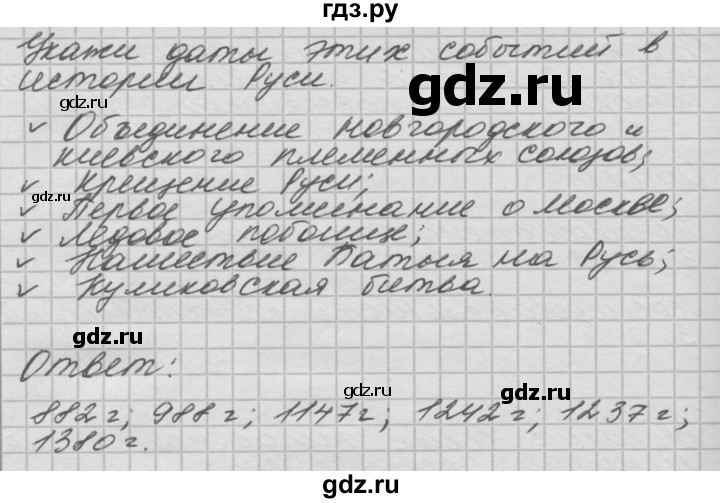 гдз.ру
Укажи даты этих событий в
истории Руси.
gdz.ru
gdz.ru
✓ Объединение новгородского и
киевского племенных союзов;
✓ Крещение Руси;
gdz.ru
✓ Первое упоминание о Москве;
✓ Ледовое побоище;
✓ Нашествие Батыя на Русь;
✓ Куликовская битва.
gdz.ru
gdz.ru
Ответ:
gdz.ru
882 г; 988 г; 1147 г; 1242 г; 1237 г;
1380 г.
gdz.ru
gdz.ru